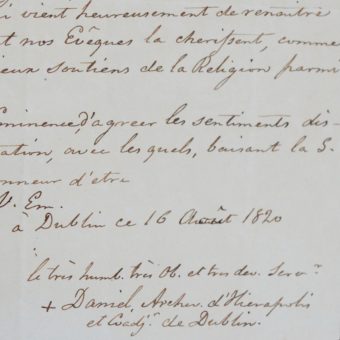 vient heureusement de renaitre
t nos Evêques la cherissent, comme
ieux soutiens de la Religion parmi
minence, d'agreer les sentiments dis-
ation, avec les quels, baisant la S.
onneur d'etre
V. Em.
à Dublin ce 16 Août 1820
le très humb. très Ob. et tres dev. Servr.
+ Daniel, Archev. d'Hierapolis
et Coadjr. de Dublin.